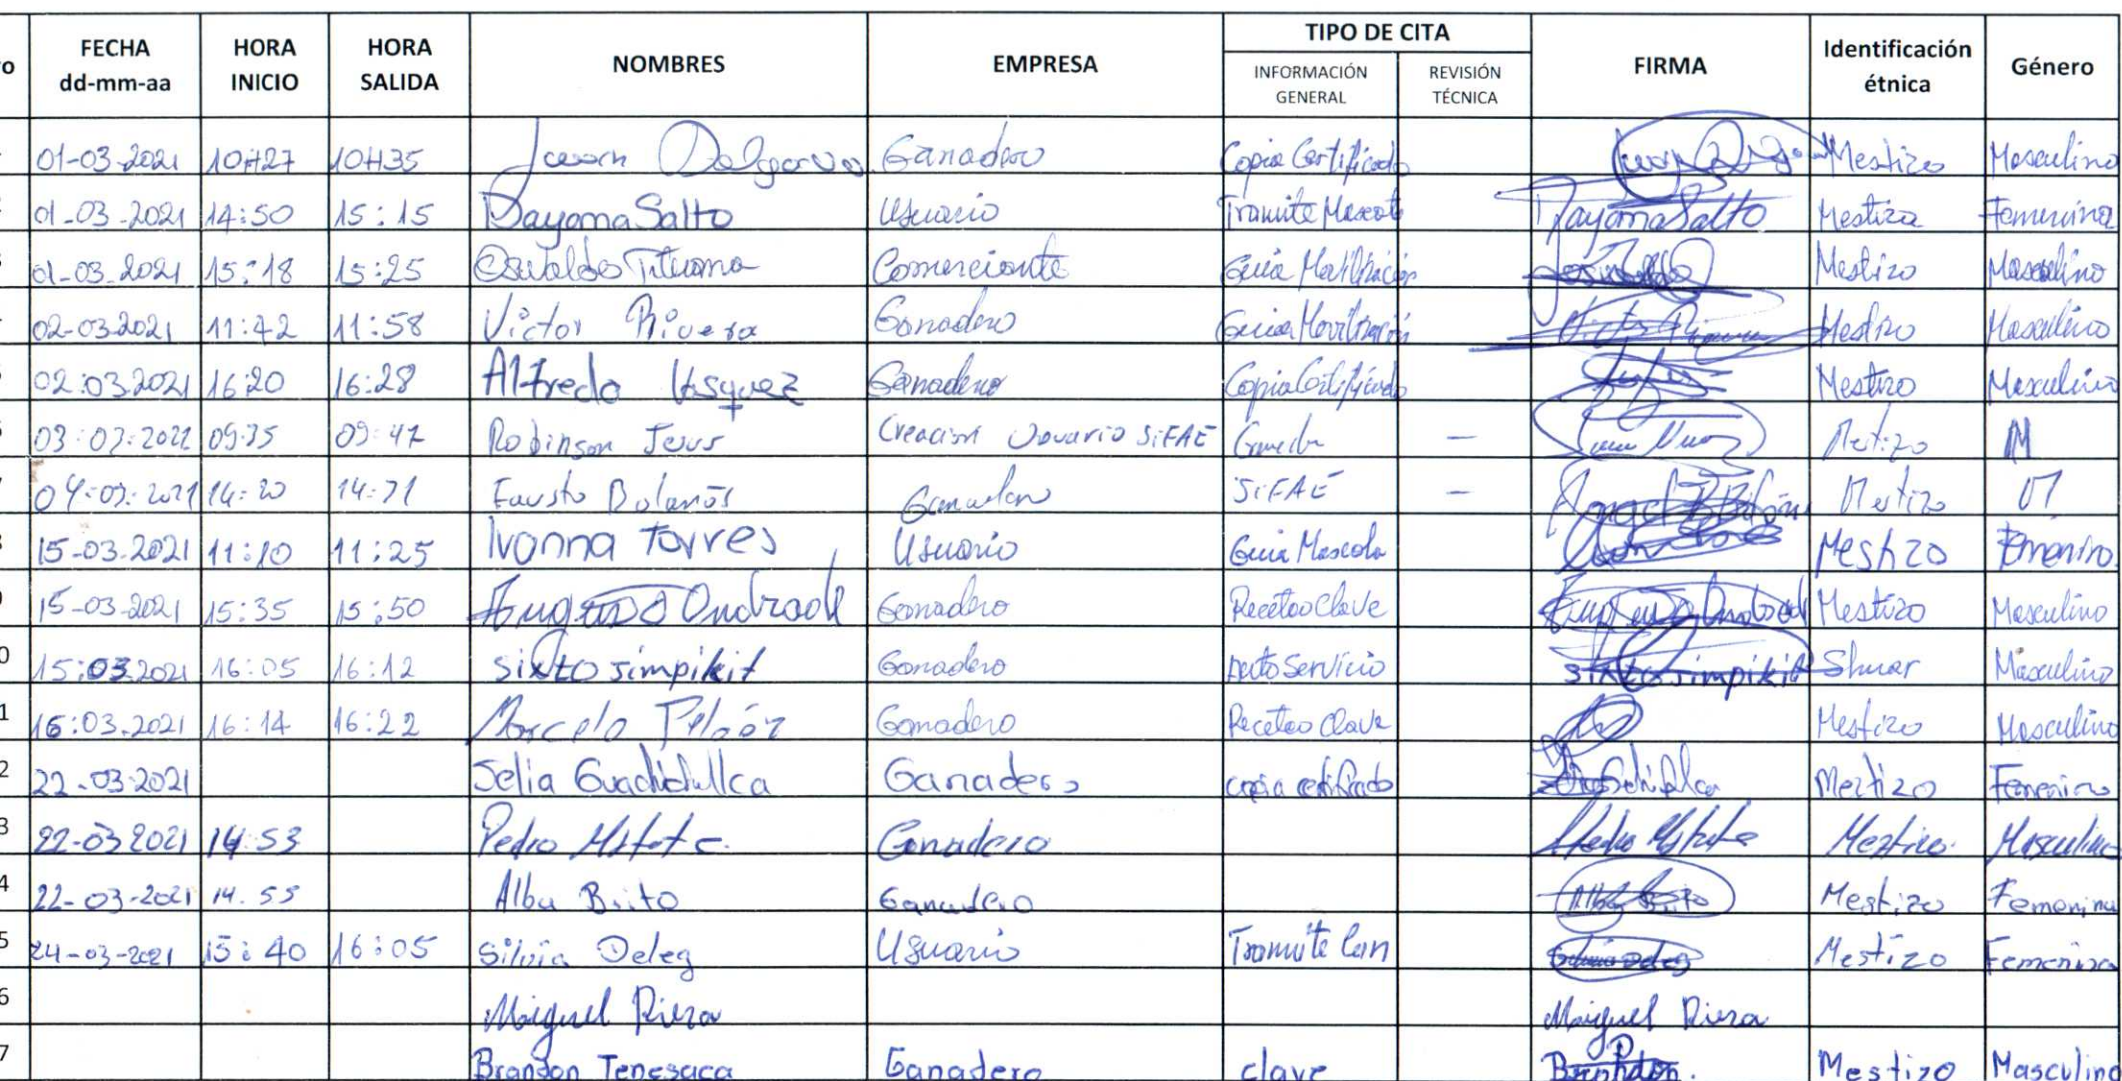 ro FECHA dd-mm-aa HORA INICIO HORA SALIDA NOMBRES EMPRESA TIPO DE CITA INFORMACIÓN GENERAL REVISIÓN TÉCNICA FIRMA Identificación étnica Género
01-03-2021 10H27 10H35 Ganadero Copia Certificado Mestizo Masculino
2 01-03-2021 14:50 15:15 Dayoma Salto Usuario Tramite Mascot Dayoma Salto Mestiza Femenina
3 01-03-2021 15:18 15:25 Oswaldo Tituana Comerciante Guia Movilización Mestizo Masculino
02-03-2021 11:42 11:58 Victor Rivera Ganadero Guia Movilización Mestizo Masculino
5 02:03.2021 16:20 16:28 Alfredo Vasquez Ganadero Copia Certificado Mestizo Masculino
6 09:35 09:47 Robinson Creación Usuario SiFAE — Mestizo M
7 14:20 Fausto Bolaños Ganadero SiFAE — Mestizo M
8 15-03-2021 11:10 11:25 Ivonna Torres Usuario Guia Mascota Mestizo Femenino
9 15-03-2021 15:35 15:50 Ganadero Reseteo Clave Mestizo Masculino
0 15:03.2021 16:05 16:12 sixto simpikit Ganadero Auto Servicio sixto simpikit Shuar Masculino
1 16:03.2021 16:14 16:22 Marcelo Peláez Ganadero Reseteo Clave Mestizo Masculino
2 22-03-2021 Ganadero copia certificado Mestizo Femenino
3 22-03 2021 14:53 Pedro Ganadero Pedro Mestizo Masculino
4 22-03-2021 14.55 Alba Brito Ganadero Alba Brito Mestizo Femenina
5 24-03-2021 15:40 16:05 Silvia Deleg Usuario Tramite Can Silvia Deleg Mestizo Femenina
6 Miguel Riera Miguel Riera
7 Brandon Tenesaca Ganadero clave Brandon. Mestizo Masculino